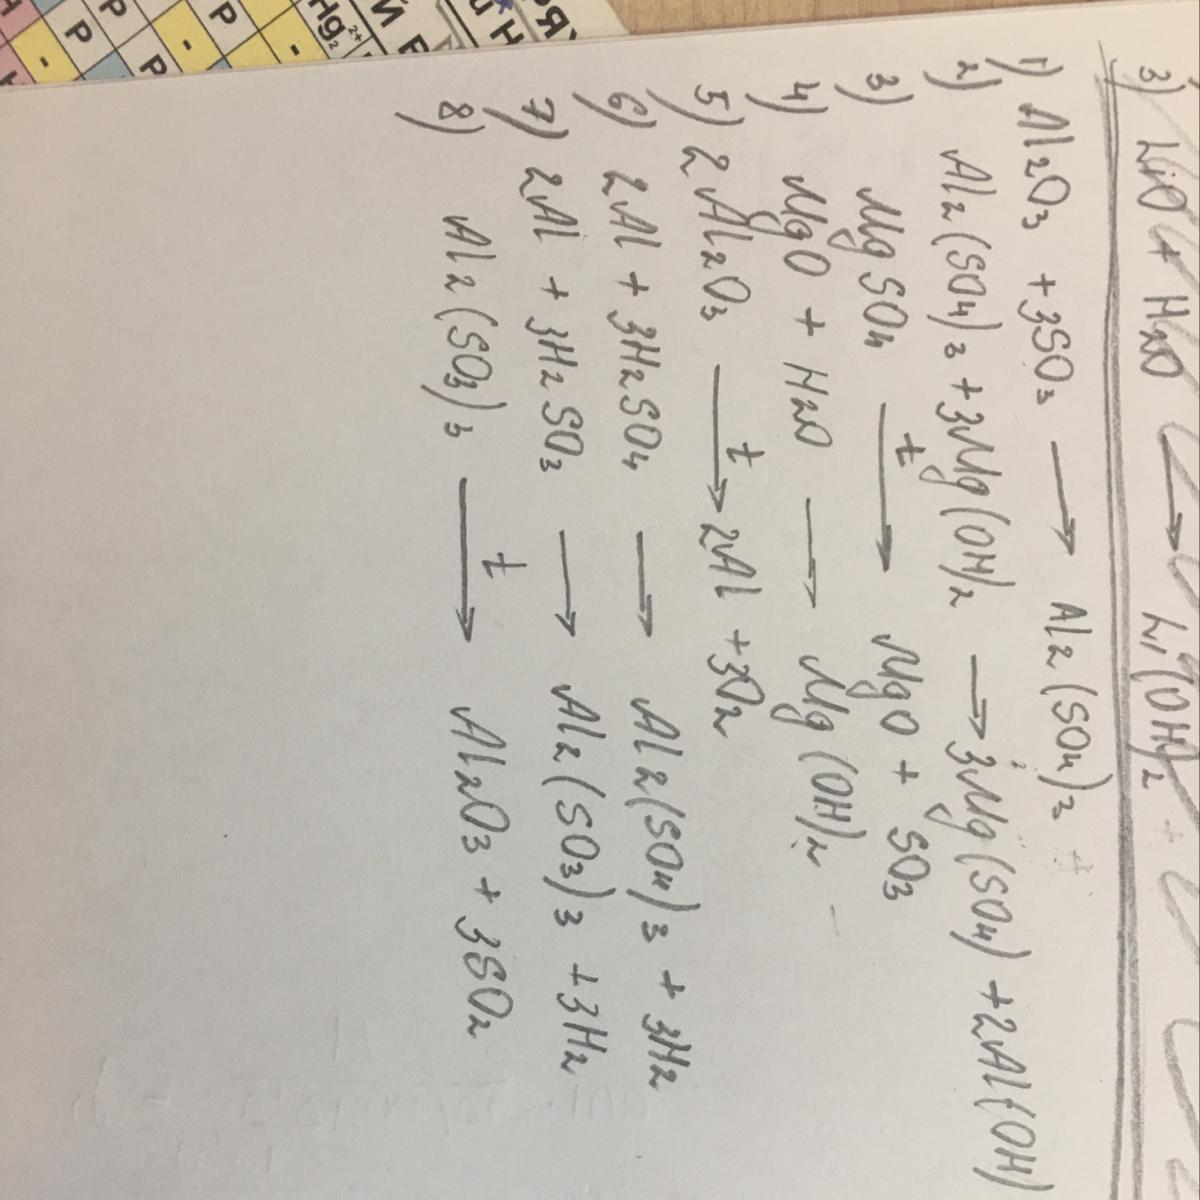 3) LiO + H2O → Li(OH)2 +
1) Al2O3 + 3SO3 → Al2(SO4)3
2) Al2(SO4)3 + 3Mg(OH)2 → 3Mg(SO4) + 2Al(OH)
3) MgSO4 t→ MgO + SO3
4) MgO + H2O → Mg(OH)2
5) 2Al2O3 t→ 2Al + 3O2
6) 2Al + 3H2SO4 → Al2(SO4)3 + 3H2
7) 2Al + 3H2SO3 → Al2(SO3)3 + 3H2
8) Al2(SO3)3 t→ Al2O3 + 3SO2
P P P P
- - -
Hg2 2+